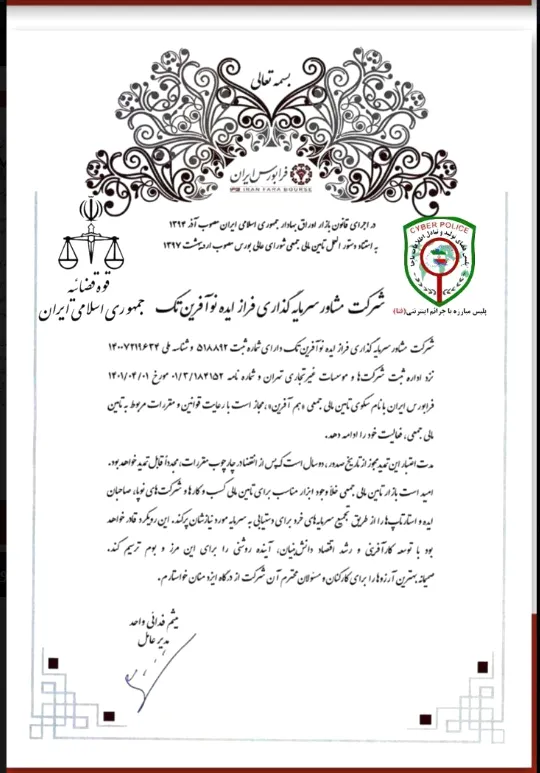 بسمه تعالی
فرابورس ایران
IRAN FARA BOURSE
در اجرای قانون بازار اوراق بهادار جمهوری اسلامی ایران مصوب آذر ۱۳۸۴
به استناد دستور العمل تامین مالی جمعی شورای عالی بورس مصوب اردیبهشت ۱۳۹۷
قوه قضائیه
جمهوری اسلامی ایران
CYBER POLICE
پلیس فضای تولید و تبادل اطلاعات ناجا
پلیس مبارزه با جرائم اینترنتی (فتا)
شرکت مشاور سرمایه گذاری فراز ایده نوآفرین تک
شرکت مشاور سرمایه گذاری فراز ایده نوآفرین تک دارای شماره ثبت ۵۱۸۸۹۲ و شناسه ملی ۱۴۰۰۷۲۱۹۶۳۴
نزد اداره ثبت شرکت‌ها و موسسات غیرتجاری تهران و شماره نامه ۰۱/۳/۱۸۴۱۵۲ مورخ ۱۴۰۱/۰۴/۰۱
فرابورس ایران با نام سکوی تامین مالی جمعی «هم آفرین»، مجاز است با رعایت قوانین و مقررات مربوط به تامین
مالی جمعی، فعالیت خود را ادامه دهد.
مدت اعتبار این تمدید مجوز از تاریخ صدور، دو سال است که پس از انقضا در چارچوب مقررات، مجدداً قابل تمدید خواهد بود.
امید است بازار تامین مالی جمعی خلا وجود ابزار مناسب برای تامین مالی کسب و کارها و شرکت‌های نوپا، صاحبان
ایده و استارتاپ‌ها را از طریق تجمیع سرمایه‌های خرد برای دستیابی به سرمایه مورد نیازشان پر کند. این رویکرد قادر خواهد
بود با توسعه کارآفرینی و رشد اقتصاد دانش‌بنیان، آینده روشنی را برای این مرز و بوم ترسیم کند.
صمیمانه بهترین آرزوها را برای کارکنان و مسئولان محترم آن شرکت از درگاه ایزد منان خواستارم.
میثم فدائی واحد
مدیر عامل